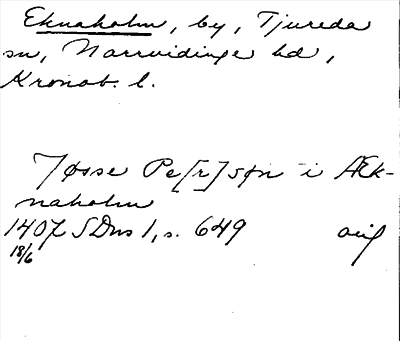 Eknaholm, by, Tjureda
sn, Norrvidinge hd,
Kronob. l.
Jøsse Pe[r]søn i Æk-
naholm
1407 SDns 1, s. 649 orig
18/6